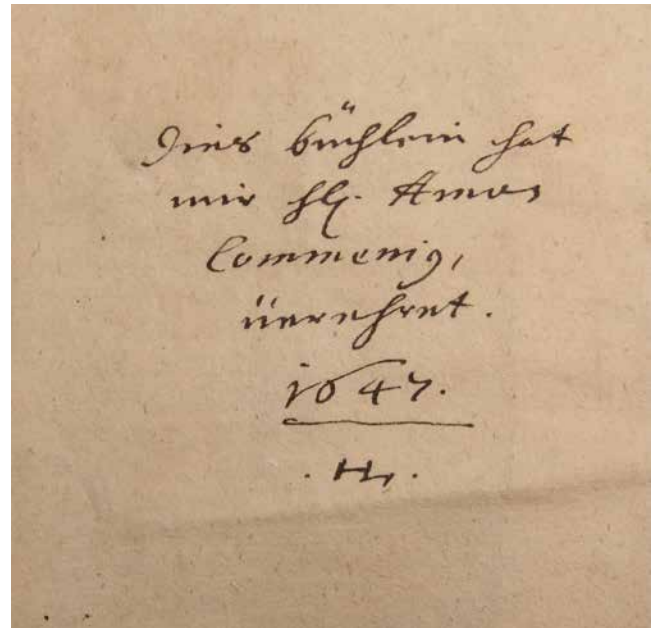 Dies büchlein hat
mir H. Amos
Commenig,
üerehret.
1647.
. H.